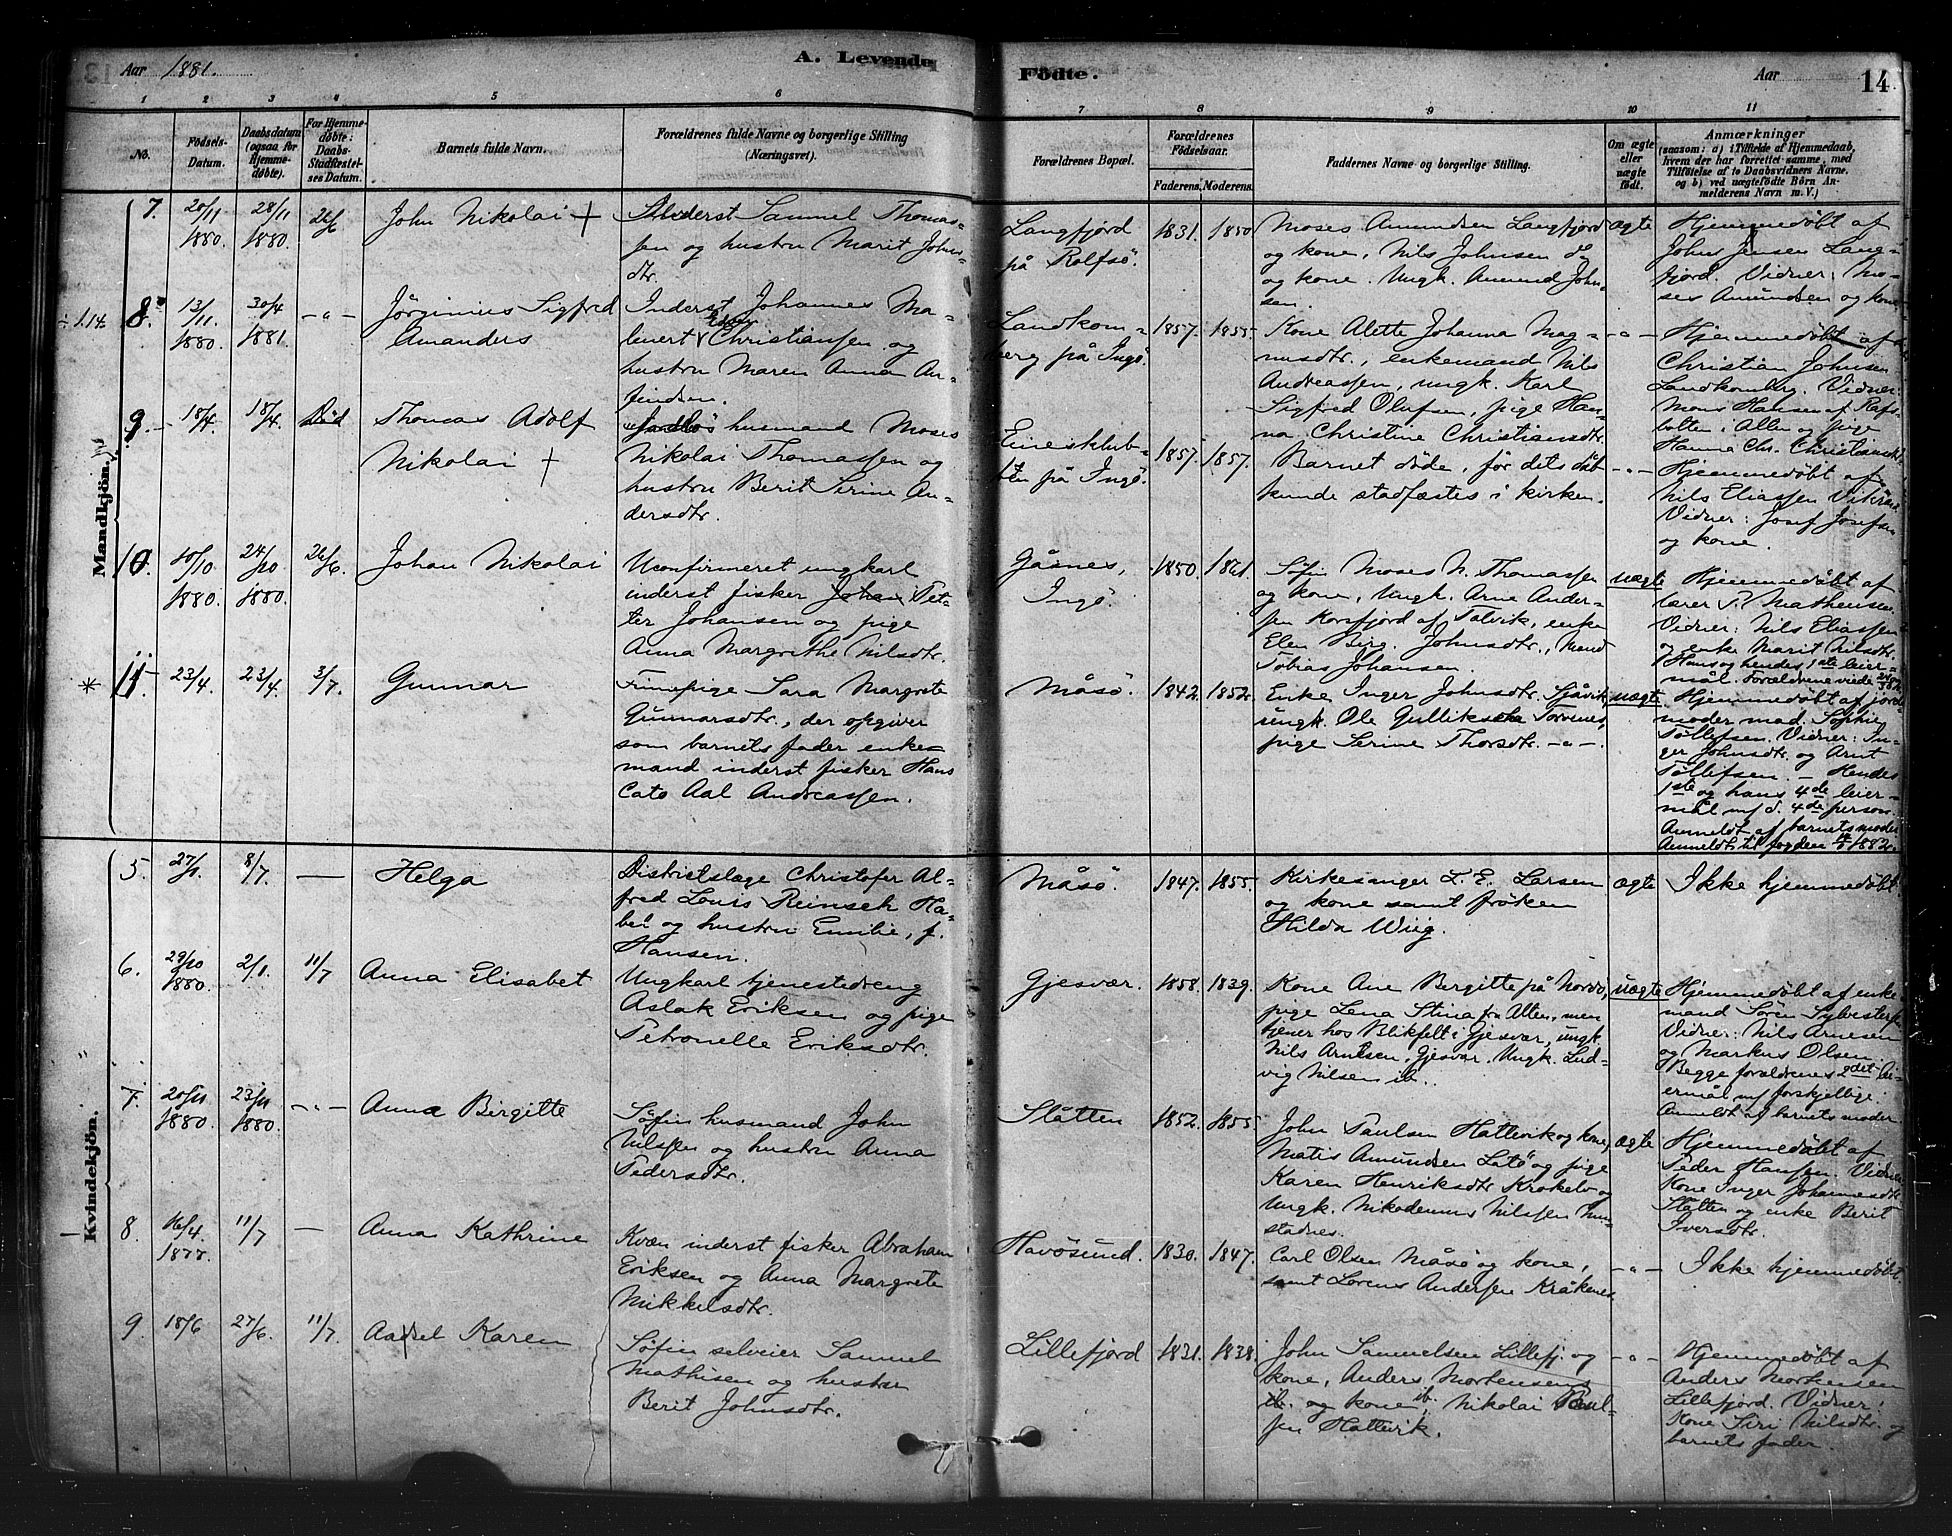 Aar 1881.
A. Levende Födte.
Aar 14
1 2 3 4 5 6 7 8 9 10 11
No.
Födsels-Datum.
Daabsdatum (ogsaa for Hjemme-døbte).
For Hjemme-døbte: Daabs-Stadfæstel-ses Datum.
Barnets fulde Navn.
Forældrenes fulde Navne og borgerlige Stilling (Næringsvei).
Forældrenes Bopæl.
Forældrenes Födselsaar.
Faderens. Moderens.
Faddernes Navne og borgerlige Stilling.
Om ægte eller uægte födt.
Anmærkninger
(saasom: a) i Tilfælde af Hjemmedaab,
hvem der har forrettet samme, med
Tilföielse af to Daabsvidners Navne,
og b) ved uægtefödte Börn An-
melderens Navn m. V.)
Mandkjön.
7. 20/11 1880. 28/11 1880. 26/6 John Nikolai +
Samuel Thomas-
sen og hustru Marit Johns-
dtr.
Langfjord
på Rolfsö.
1831. 1850
Moses Amundsen Langfjord
og kone, Nils Johnsen
og kone. Ungk. Amund John-
sen.
ægte
Hjemmedøbt af
John Jensen Lang-
fjord. Vidner: Mo-
ses Amundsen og kone
÷ 1.14
8. 13/11 1880. 30/4 1881. -"- Jörginius Sigfred
Amanders
Inderst Johannes Ma-
Christiansen, og
hustru Maren Anna An-
findsen.
Landkom-
berg på Ingö.
1857. 1855.
Kone Alette Johanna Mag-
nusdtr., enkemand Nils
Andreassen, ungk. Karl
Sigfred Olufsen, pige Han-
na Christine Christiansdtr.
-"-
Hjemmedøbt af
Christian Johnsen
Landkomberg. Vidner
Mons Hansen af Rafs-
botten i Alten og pige
Hanna Chr. Christiansdtr.
9. 18/4. 18/4. Död Thomas Adolf
Nikolai +
husmand Moses
Nikolai Thomassen og
hustru Berit Serine An-
dersdtr.
Einesklub-
ben på Ingö.
1857. 1857.
Barnet døde, før dets dåb
kunde stadfæstes i kirken.
-"-
Hjemmedøbt af
Nils Eliassen
Vidner: Josef Josefsen
og kone.
10. 10/10 1880. 24/10 1880. 26/6. Johan Nikolai
Uconfirmeret ungkarl
inderst fisker Johan Pet-
ter Johansen og pige
Anna Margrethe Nilsdtr.
Gåsnes,
Ingö.
1850. 1861.
Søfin Moses N. Thomassen
og kone, Ungk. Arne Ander-
sen Korsfjord af Talvik, enke
Elen Berg. Johnsdtr.,
Tobias Johansen.
uægte
Hjemmedøbt af
lærer P. Mathensen.
Vidner: Nils Eliassen
og enke Marit Nilsdtr.
Hans og hendes 1ste leier-
mål. Forældrene viede
* 11. 23/4. 23/4. 3/7. Gunnar
Finnepige Sara Margrete
Gunnarsdtr., der opgiver
som barnets fader enke-
mand inderst fisker Hans
Cato Aal Andreassen.
Måsö.
1842. 1852.
Enke Inger Johnsdtr. Sjåvik,
ungk. Ole Gulliksen Torsnes,
pige Serine Thorsdtr. -"-.
uægte.
Hjemmedøbt af jorde-
moder mad. Sophie
Tollefsen. Vidner: In-
ger Johnsdtr. og Arnt
Tollefsen. - Hendes
1ste og hans 4de leier-
mål m/ d. 4de person.
Anmeldt af barnets moder
Anmeldt til fogden 1882.
Kvindekjön.
5. 27/1. 8/7. — Helga
Districtslæge Christofer Al-
fred Louis Reinsch Ha-
bel og hustru Emilie, f.
Hansen.
Måsö.
1847. 1855.
Kirkesanger L. E. Larsen
og kone samt fröken
Hilda Wiig.
ægte
Ikke hjemmedøbt
6. 29/10 1880. 2/1. 11/7 Anna Elisabet
Ungkarl tjenestedreng
Aslak Eriksen og pige
Petronelle Eriksdtr.
Gjesvær.
1858. 1839.
Kone Ane Bergitte på Nordö,
pige Lena Stina fra Alten, men
tjener hos Blikfelt i Gjesvær, ungk.
Nils Arntsen, Gjesvær. Ungk. Lud-
vig Nilsen ib.
uægte
Hjemmedøbt af enke-
mand Sören Sylvestersen
Vidner: Nils Arnesen
og Markus Olsen.
Begge forældrenes 2det lei-
ermål m/ forskjellige.
Anmeldt af barnets moder
7. 20/11 1880. 23/11 1880. -"- Anna Birgitte
Søfin husmand John
Nilssen og hustru Anna
Pedersdtr.
Slåtten
1852. 1855.
John Paulsen Hattevik og kone,
Matis Amundsen Latö og pige
Karen Henriksdtr Krokelv og
Ungk. Nikodemus Nilssen
stadnes.
ægte
Hjemmedøbt af
Peder Hansen. Vidner
Kone Inger Johannesdtr
Slåtten og enke Berit
Iversdtr.
8. 16/4. 1877. 11/7 — Anna Kathrine
Kvæn inderst fisker Abraham
Eriksen og Anna Margrete
Mikkelsdtr.
Havösund.
1830. 1847.
Carl Olsen Måsö og kone,
samt Lorens Andersen Kråkenes.
-"-
Ikke hjemmedøbt.
9. 18/6 27/6. 11/7. Aadsel Karen
Søfin selveier Samuel
Mathisen og hustru
Berit Johnsdtr.
Lillefjord
1831. 1838.
John Samuelsen Lillefj. og
kone, Anders Mortensen
ib. og kone ib. Nikolai Paul-
sen Hattevik.
-"-
Hjemmedøbt af
Anders Mortensen
Lillefjord. Vidner:
Kone Siri Nilsdtr. og
barnets fader.